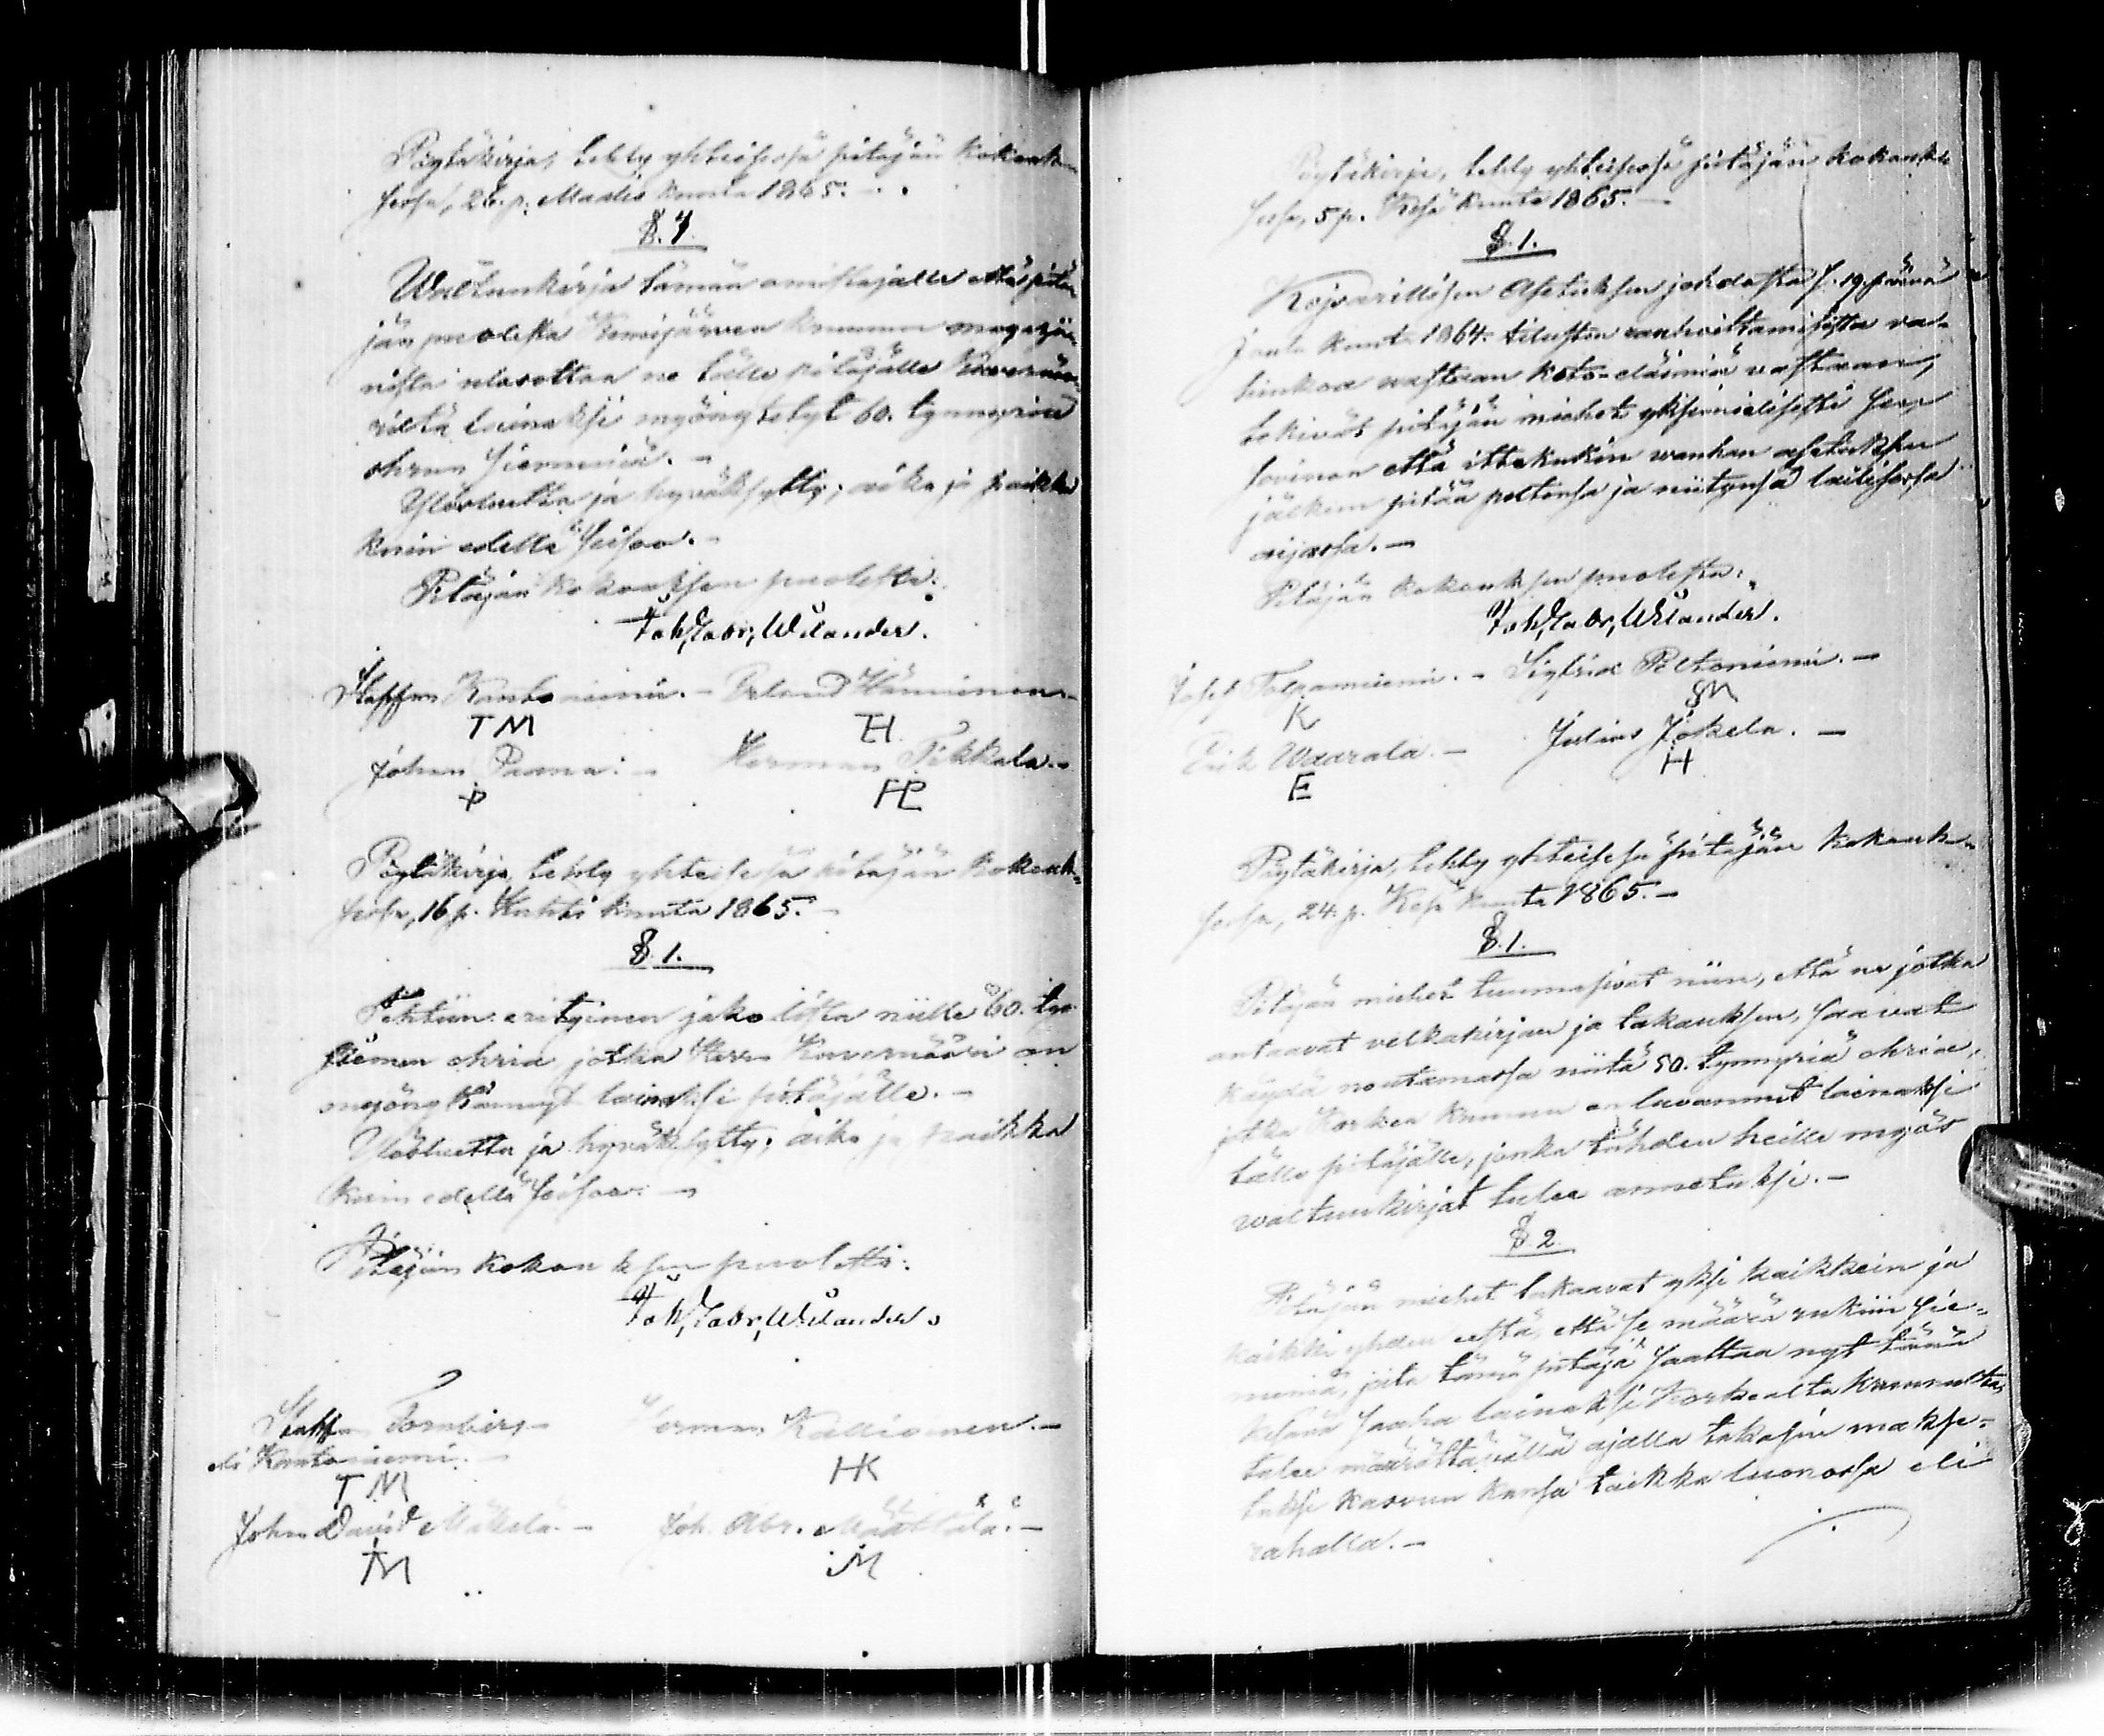 Pöytäkirja, tehty yhteisessä pitäjän kokouk-
sessa, 26. p. Maalis kuuta 1865. -
§. 1.
Waltuukirja tämän omistajalle että pitä-
jän puolesta Kemijärven kruunun magasii-
nista ulosottaa ne tälle pitäjälle Kuvernöö-
riltä lainaksi myönnytetyt 60. tynnyriä
ohran siemeniä. -
Ylösluettu ja hyväksytty; aika ja paikka
kuin edellä seisoo. -
Pitäjän kokouksen puolesta:
Joh, Gabr, Welander.
Staffan Kantoniemi. - Erland Hänninen. -
TM EH
Johan Paana. - Herman Pikkala. -
P HP
Pöytäkirja, tehty yhteisessä pitäjän kokouk-
sessa, 16 p. Huhti kuuta 1865. -
§. 1.
Tehtiin erityinen jako lista niille 60. tyn
siemen ohria jotka Herra Kuvernööri on
myönyttännyt lainaksi pitäjälle. -
Ylösluettu ja hyväksytty; aika ja paikka
kuin edellä seisoo. -
Pitäjän kokouksen puolesta:
Joh, Gabr, Welander.
Staffan Fornberg Herman Kallioinen. -
eli Kantoniemi. -
TM HK
Johan David Mäkelä. - Joh. Abr. Määttälä. -
M M
Pöytäkirja, tehty yhteisessä pitäjän kokouk-
sessa, 5 p. Kesä kuuta 1865. -
§. 1.
Kejsarillisen Asetuksen johdosta 19. päivä
Joulu kuut. 1864. tilusten rauhoittamisesta va-
hinkoa vastaan koto-eläimiä vastaan,
tekivät pitäjän miehet yksimielisesti sen
sovinnon että ittekukin wanhan asetuksen
jälkeen pitää peltonsa ja niitynsä laillisessa
aijassa. -
Pitäjän kokouksen puolesta:
Joh, Gabr, Welander.
Josef Tolpanniemi. - Sigfrid Peltoniemi. -
K SM
Erik Waarala. - Julius Jokela. -
E H
Pöytäkirja, tehty yhteisessä pitäjän kokouk-
sessa, 24. p. Kesä kuuta 1865. -
§. 1.
Pitäjän miehet tuumasivat niin, että ne jotka
antaavat velkakirjan ja takauksen, saavat
käydä noutamassa niitä 50. tynnyriä ohria,
jotka Korkea kruunu on luvannut lainaksi
tälle pitäjälle, jonka tähden heille myös
waltuukirjat tulee annetuksi. -
§ 2.
Pitäjän miehet takaavat yksi kaikkein ja
kaikki yhden eestä, että se määrä rukiin sie-
meniä, joita tämä pitäjä saattaa nyt tänä
kesänä saaha lainaksi Korkealta kruunulta,
tulee määrättävällä ajalla takasin makse-
tuksi kasvun kansa taikka luonossa eli
rahalla. -